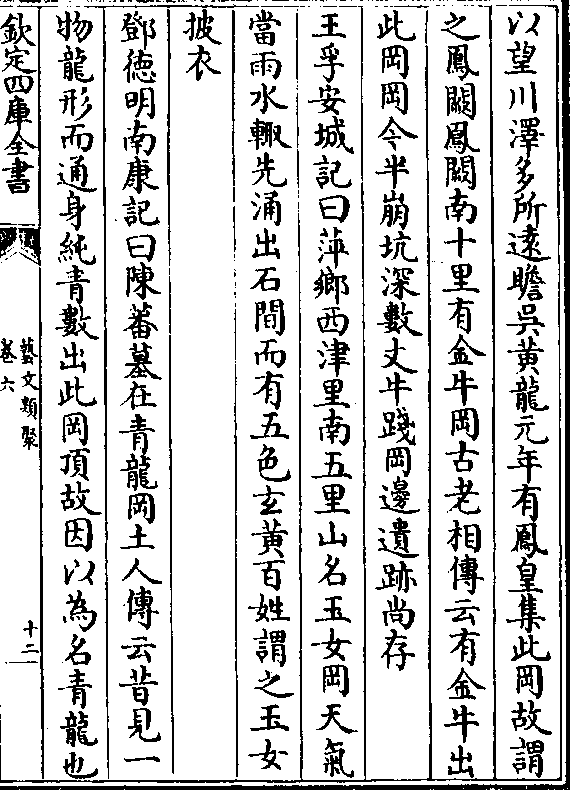 以望川澤多所遠瞻吳黃龍元年有鳳皇集此岡故謂
之鳳闕鳳闕南十里有金牛岡古老相傳云有金牛出
此岡岡今半崩坑深數丈牛踐岡邊遺跡尚存
王孚安城記曰萍鄉西津里南五里山名玉女岡天氣
當雨水輙先涌出石間而有五色玄黃百姓謂之玉女
披衣
鄧德明南康記曰陳蕃墓在青龍岡土人傳云昔見一
物龍形而通身純青數出此岡頂故因以為名青龍也
欽定四庫全書
藝文類聚
卷六
十二